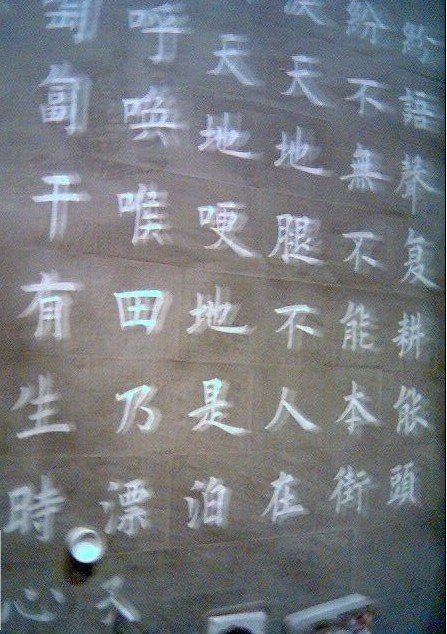 紛語聲复耕能頭
紛不無不能本街
天地腿不人在
天地哽地是泊
呼喚喉田乃漂
匐干有生時心